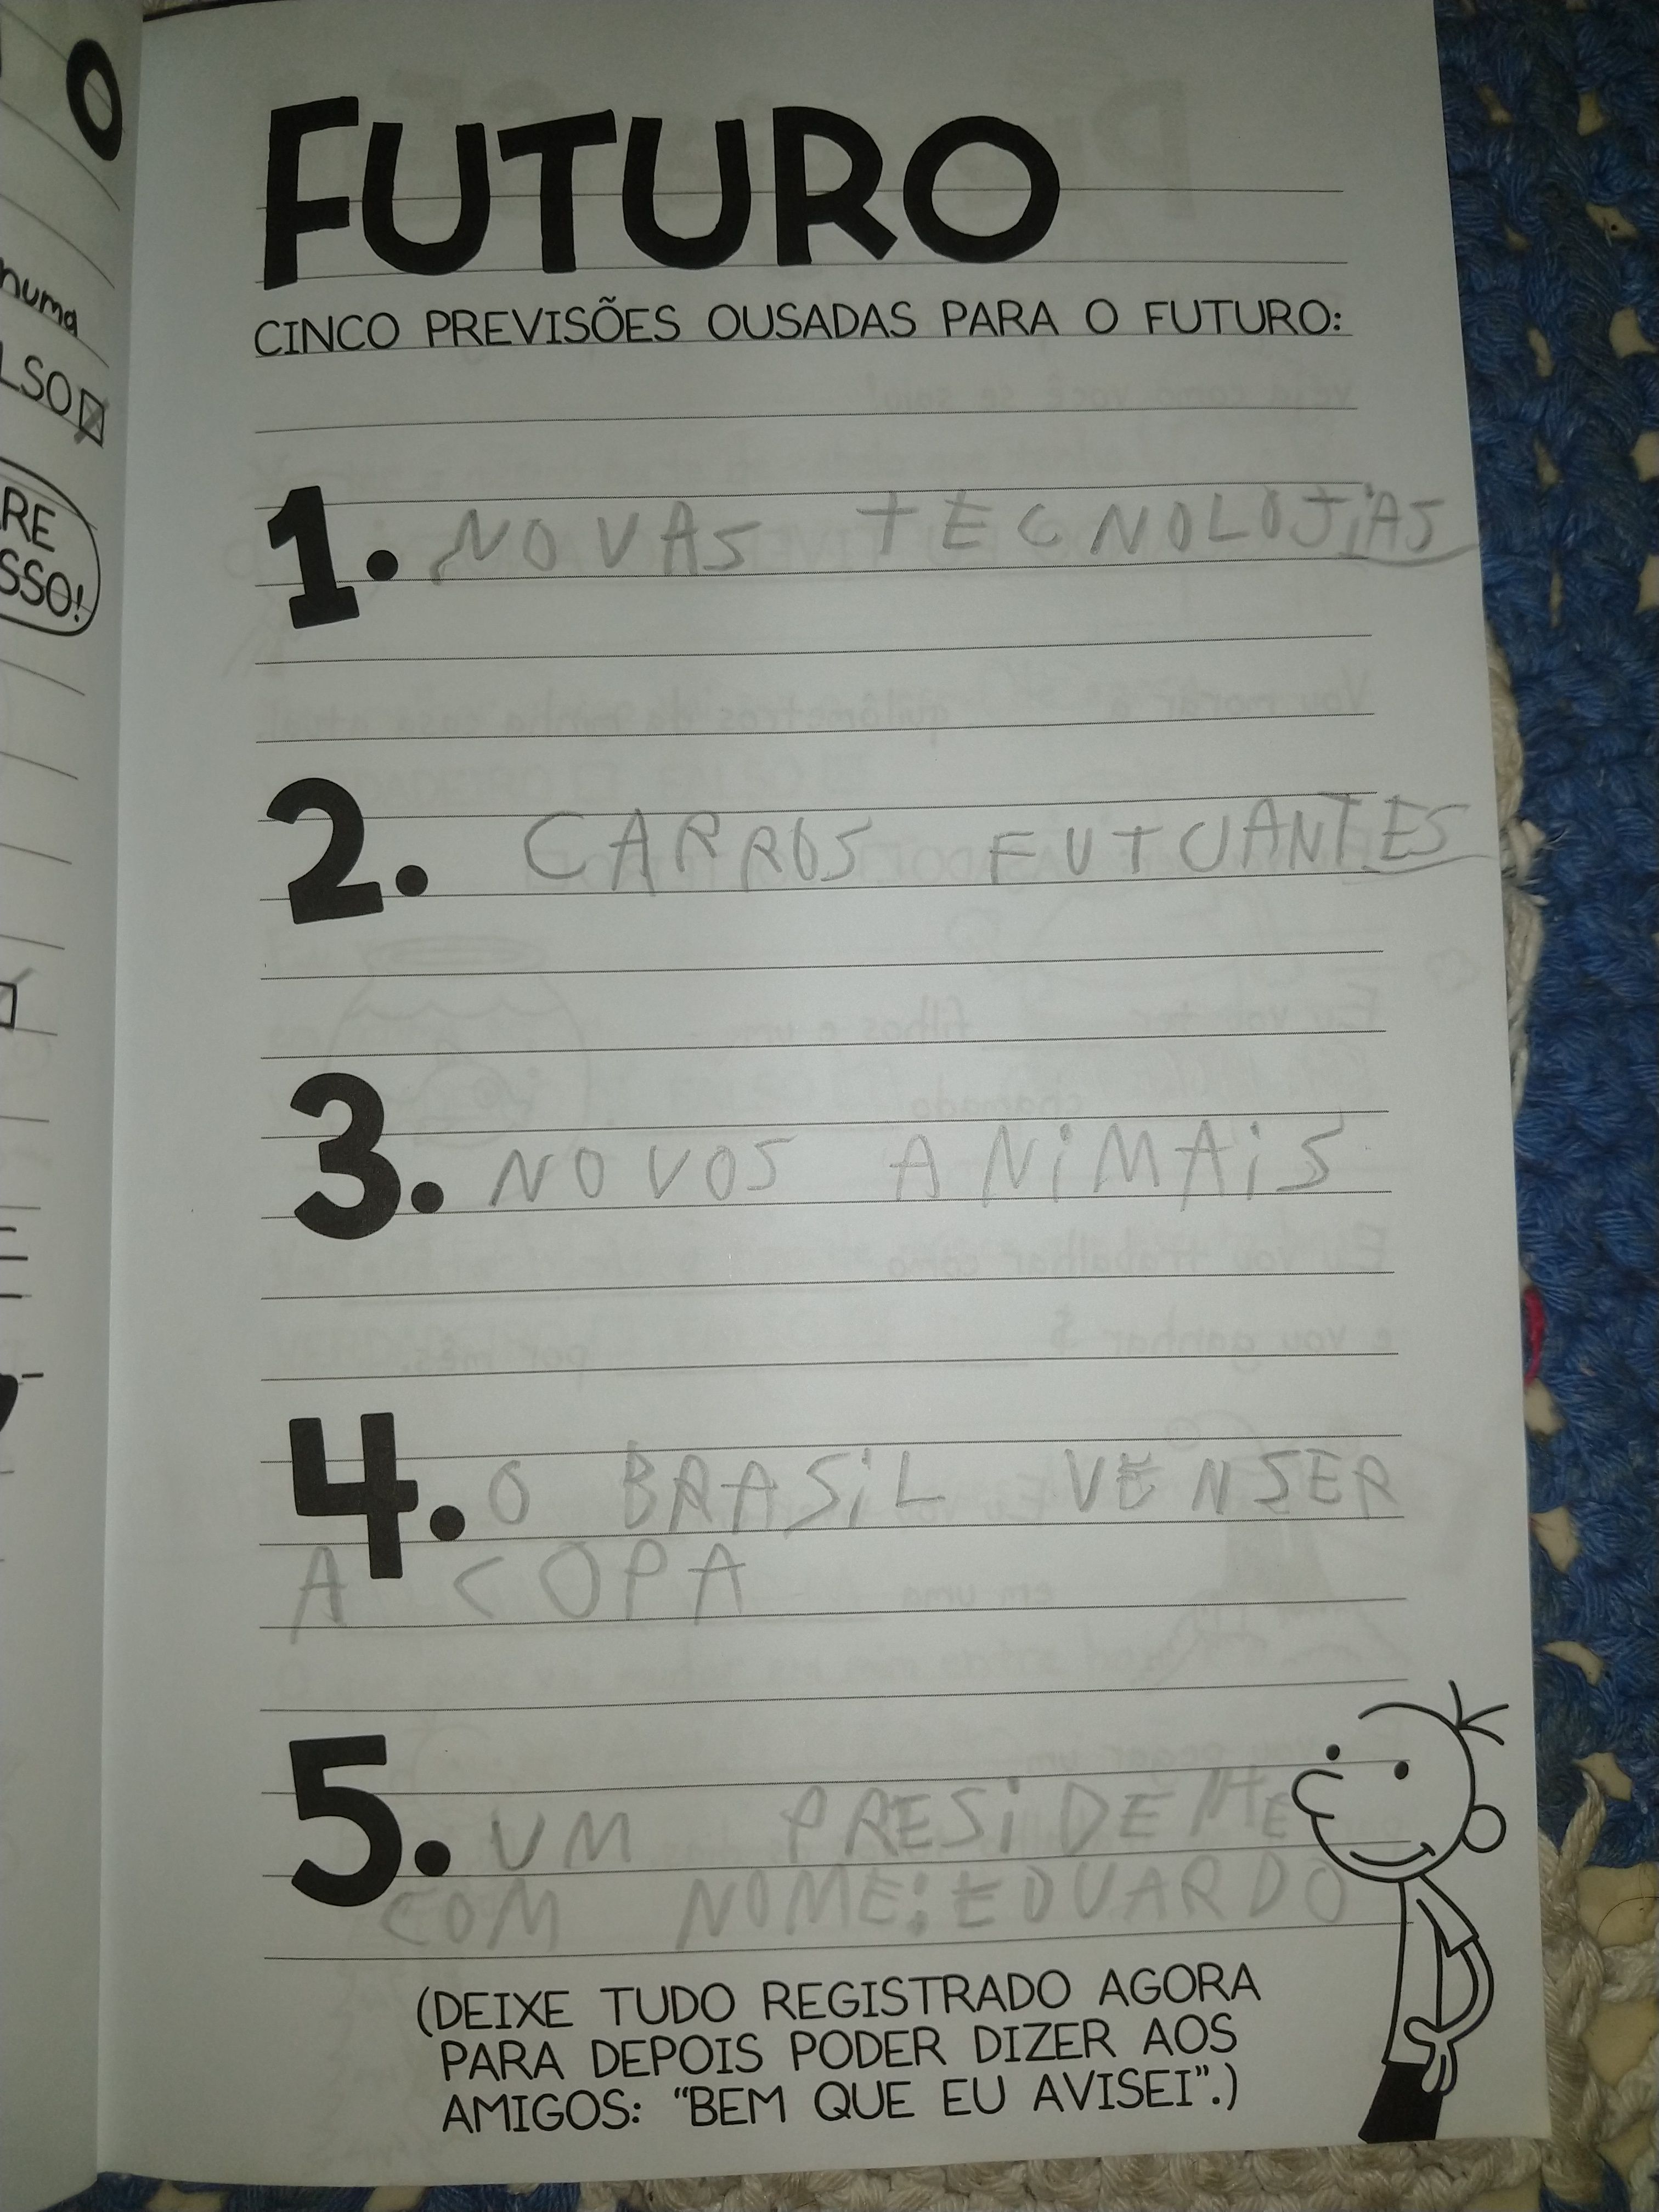 O
numa
LSO
RE
SSO!
FUTURO
CINCO PREVISÕES OUSADAS PARA O FUTURO:
1. NOVAS TECNOLOJiAS
2. CARROS FUTUANTES
3. NOVOS ANiMAiS
4. O BRASiL VENSER
A COPA
5. UM PRESiDENTE
COM NOME: EDUARDO
(DEIXE TUDO REGISTRADO AGORA
PARA DEPOIS PODER DIZER AOS
AMIGOS: “BEM QUE EU AVISEI”.)